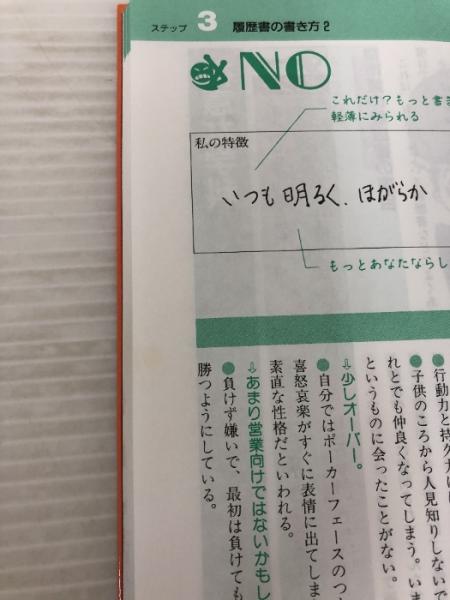 ステップ 3 履歴書の書き方2
NO
これだけ?もっと書き
軽薄にみられる
私の特徴
いつも明るく、ほがらか
もっとあなたならし
●行動力と持久力
●子供のころから人見知りしないで
れとでも仲良くなってしまう。いま
というものに会ったことがない。
⇩少しオーバー。
●自分ではポーカーフェースのつも
喜怒哀楽がすぐに表情に出てしま
素直な性格だといわれる。
⇩あまり営業向けではないかもし
●負けず嫌いで、最初は負けても
勝つようにしている。